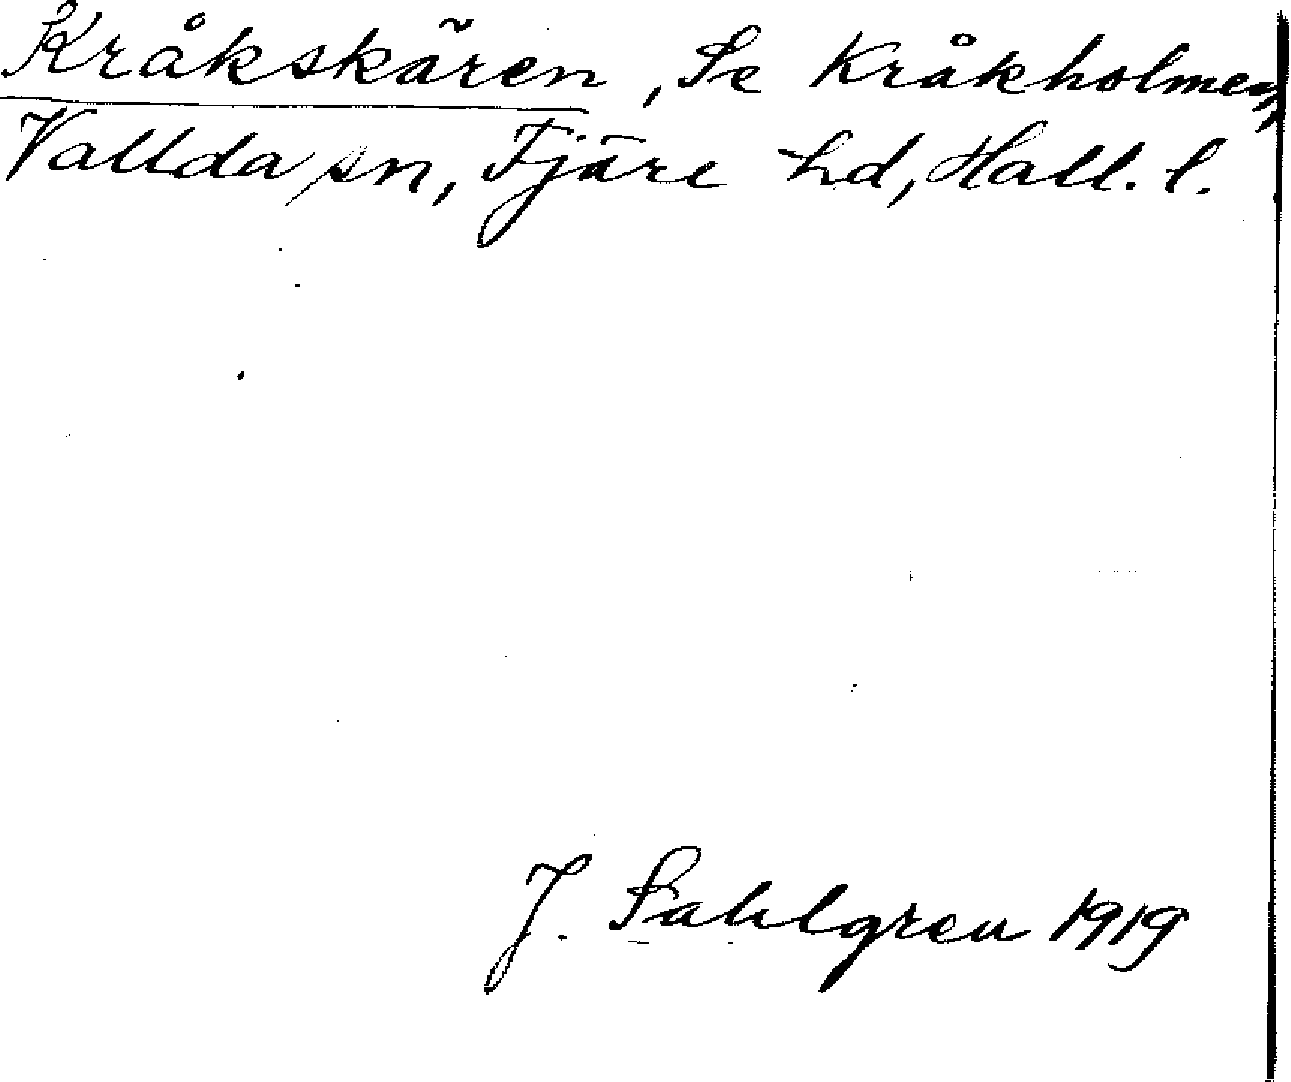 Kråkskären, Se Kråkholmen,
Vallda sn, Fjäre hd, Hall. l.
J. Sahlgren 1919